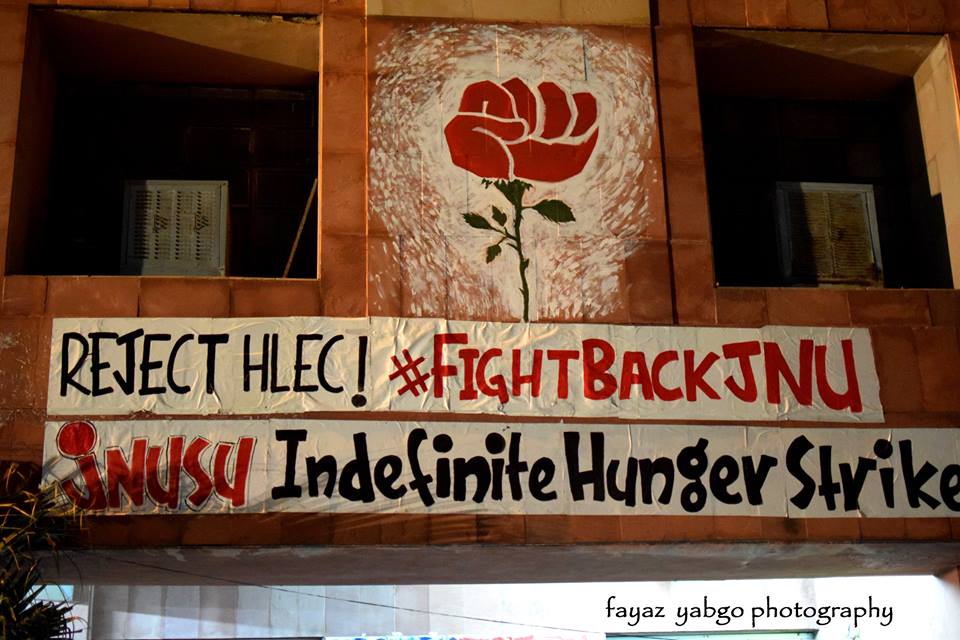 REJECT HLEC! #FIGHTBACKJNU
JNUSU Indefinite Hunger Strike
fayaz yabgo photography